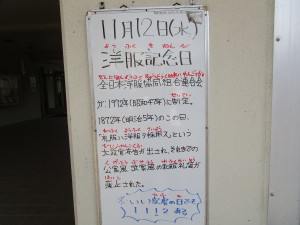 11月12日(水)
ようふくきねんび
洋服記念日
全日本洋服協同組合連合会
が1972年(昭和47年)に制定。
1872年(明治5年)のこの日、
「礼服ニ洋服ヲ採用ス」という
太政官布告が出され、それまでの
公家風・武家風の和服礼服が
廃止された。
いい
の日でも
ある